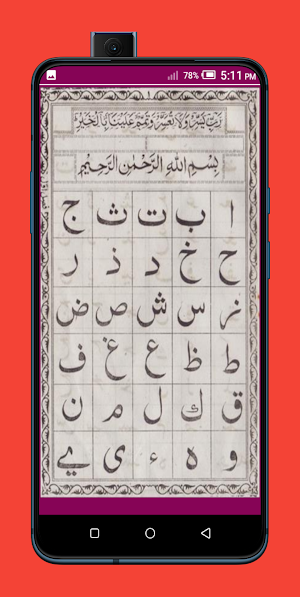 78% 5:11 PM
١
رَبِّ يَسِّرْ وَلَا تُعَسِّرْ وَتَمِّمْ عَلَيْنَا بِالْخَيْرِ
بِسْمِ اللهِ الرَّحْمٰنِ الرَّحِيْمِ
ا ب ت ث ج
ح خ د ذ ر
ز س ش ص ض
ط ظ ع غ ف
ق ك ل م ن
و ه ء ي ے